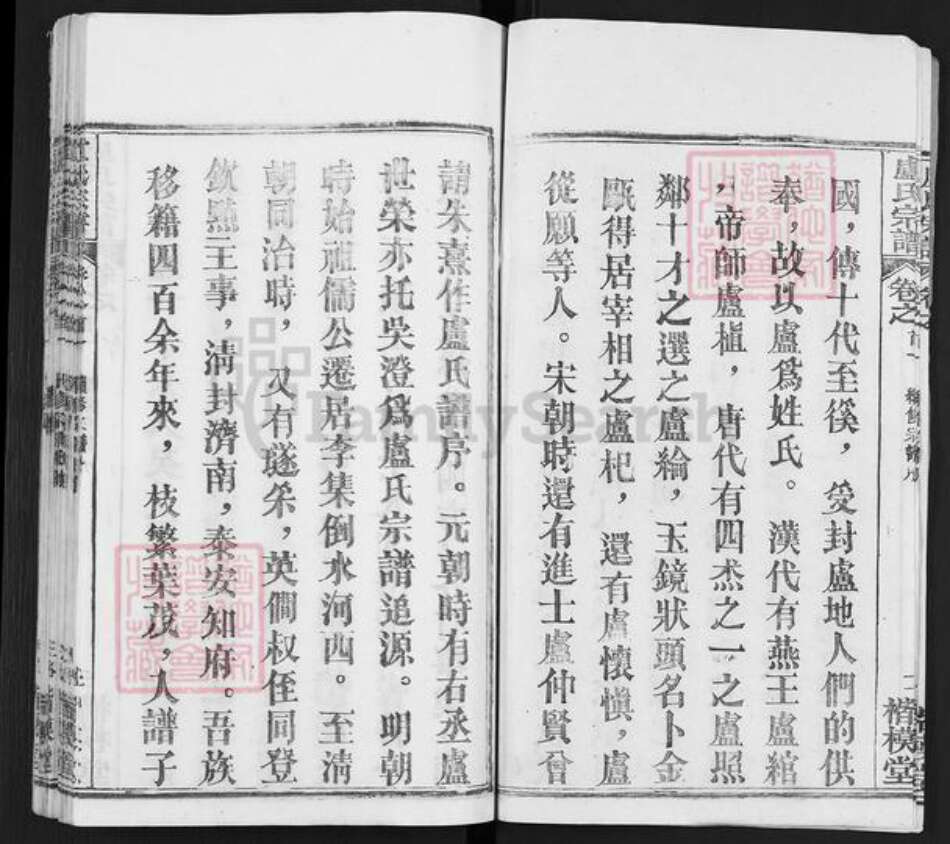 盧氏宗譜 卷之首一 續修宗譜序 二 楷模堂
國，傳十代至徯，受封盧地人們的供
奉，故以盧爲姓氏。漢代有燕王盧綰
，帝師盧植，唐代有四杰之一之盧照
鄰十才之選之盧綸，玉鏡狀頭名卜金
甌得居宰相之盧杞，還有盧懷愼，盧
從愿等人。宋朝時還有進士盧仲賢曾
請朱熹作盧氏譜序。元朝時有右丞盧
世榮亦托吳澄爲盧氏宗譜追源。明朝
時始祖儒公遷居李集倒水河西。至淸
朝同治時，又有璲采，英僩叔侄同登
欽點主事，淸封濟南，泰安知府。吾族
移籍四百余年來，枝繁葉茂，人譜子
FamilySearch